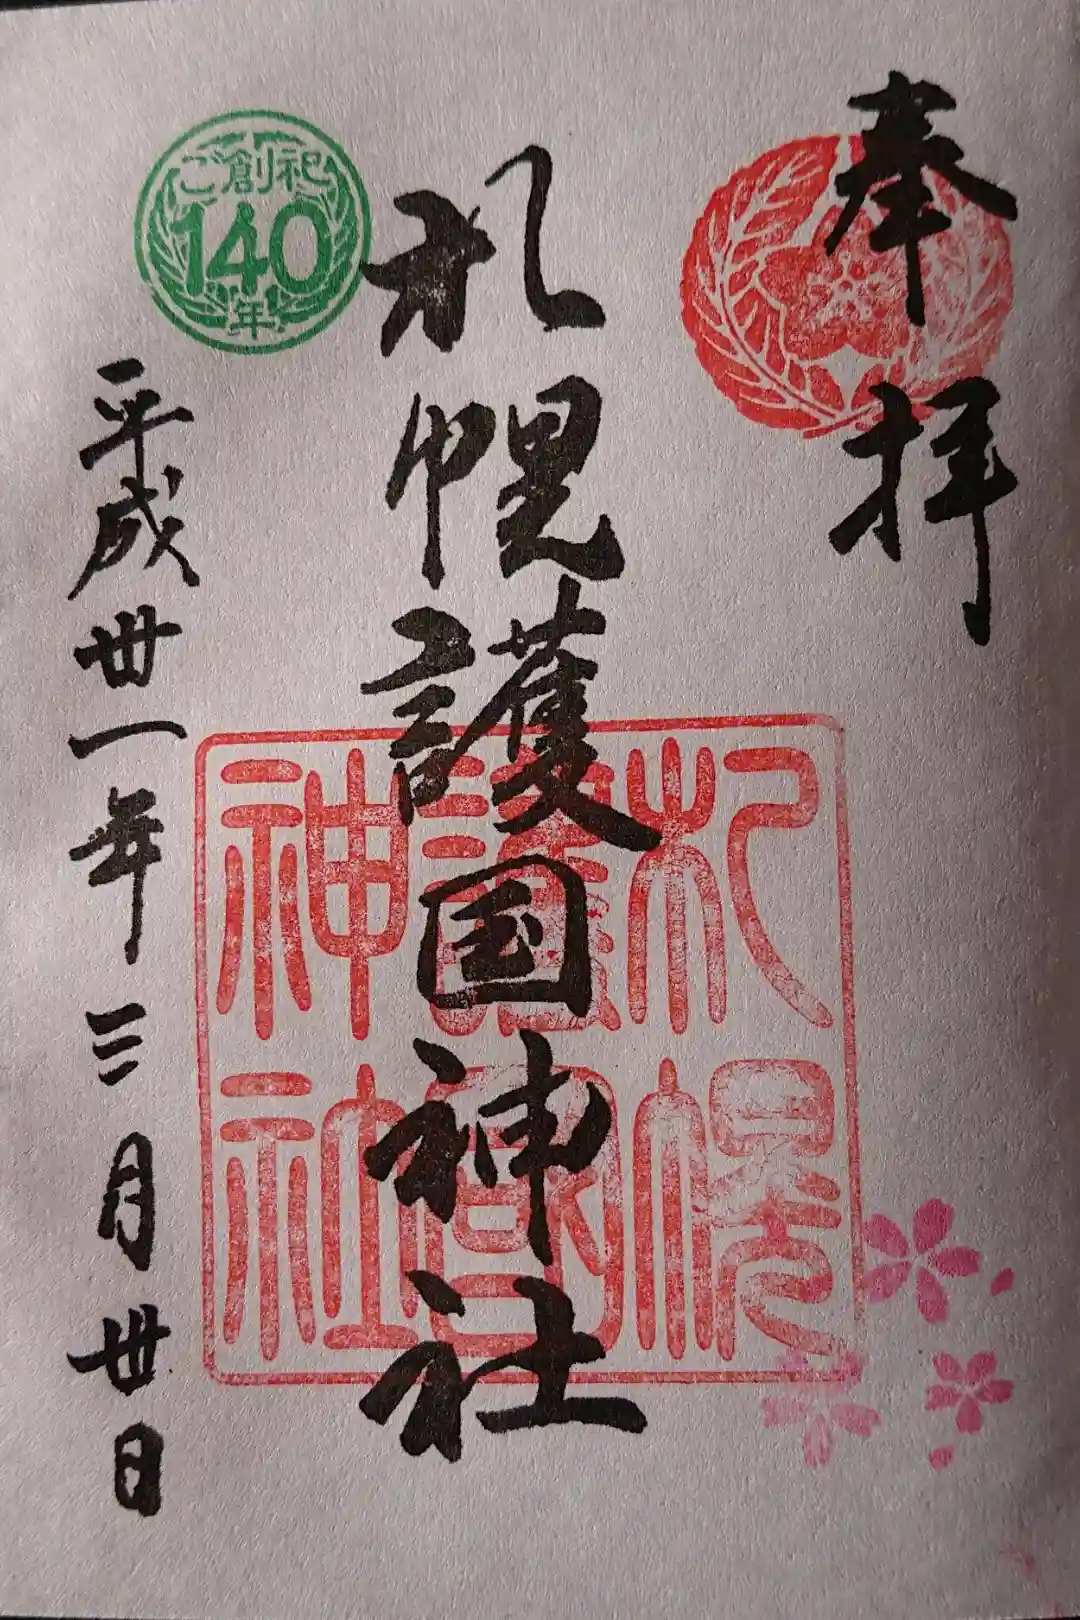 奉拝
札幌護国神社
札幌
護國
神社
ご創祀
140
年
平成丗一年三月丗日